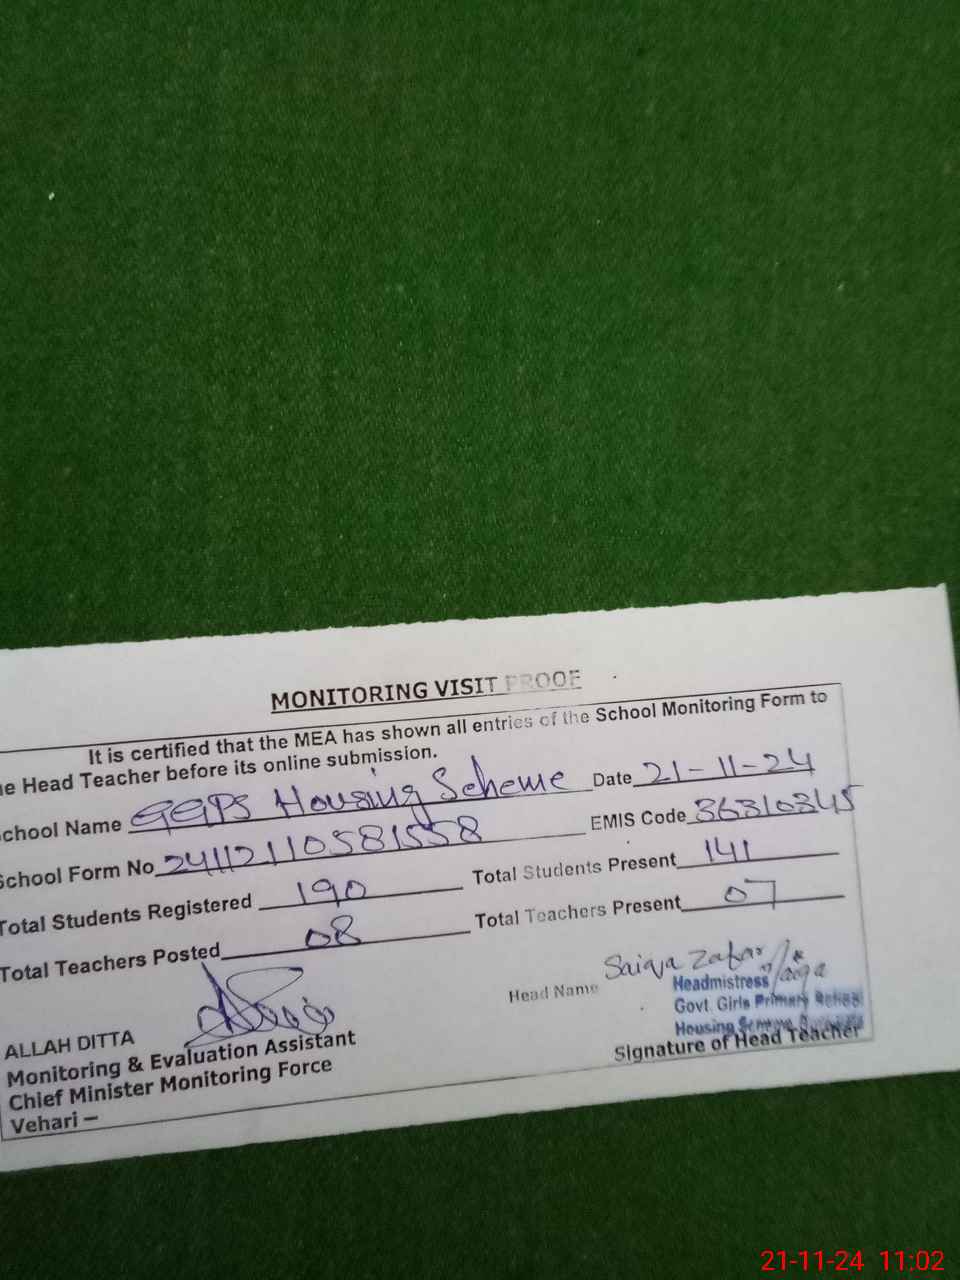 MONITORING VISIT PROOF
It is certified that the MEA has shown all entries of the School Monitoring Form to
he Head Teacher before its online submission.
School Name GGPS Housing Scheme Date 21-11-24
School Form No 24112110581558 EMIS Code 36310345
Total Students Registered 190 Total Students Present 141
Total Teachers Posted 08 Total Teachers Present 07
Head Name Saiqa Zafar
Headmistress
Govt. Girls Primary School
Housing Scheme
Signature of Head Teacher
ALLAH DITTA
Monitoring & Evaluation Assistant
Chief Minister Monitoring Force
Vehari –
21-11-24 11:02